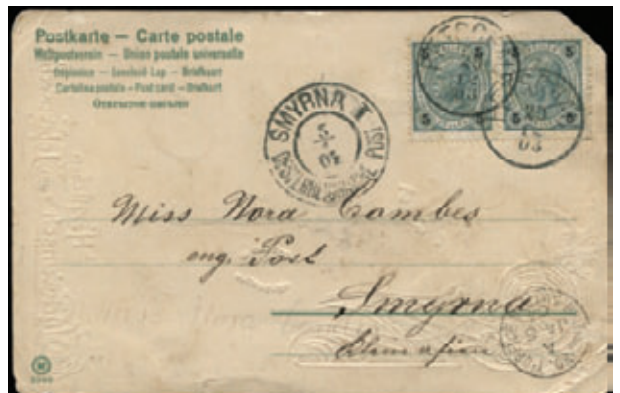 Postkarte – Carte postale
Weltpostverein – Union postale universelle
Dopisnice – Levelező-Lap – Briefkaart
Cartolina postale – Post card – Brefkort
Открытое письмо
5 5 5 5
5 5 5 5
SMYRNA I
OESTERR. POST
03
Miss Nora Combes
eng. Post
Smyrna
Kleinasien